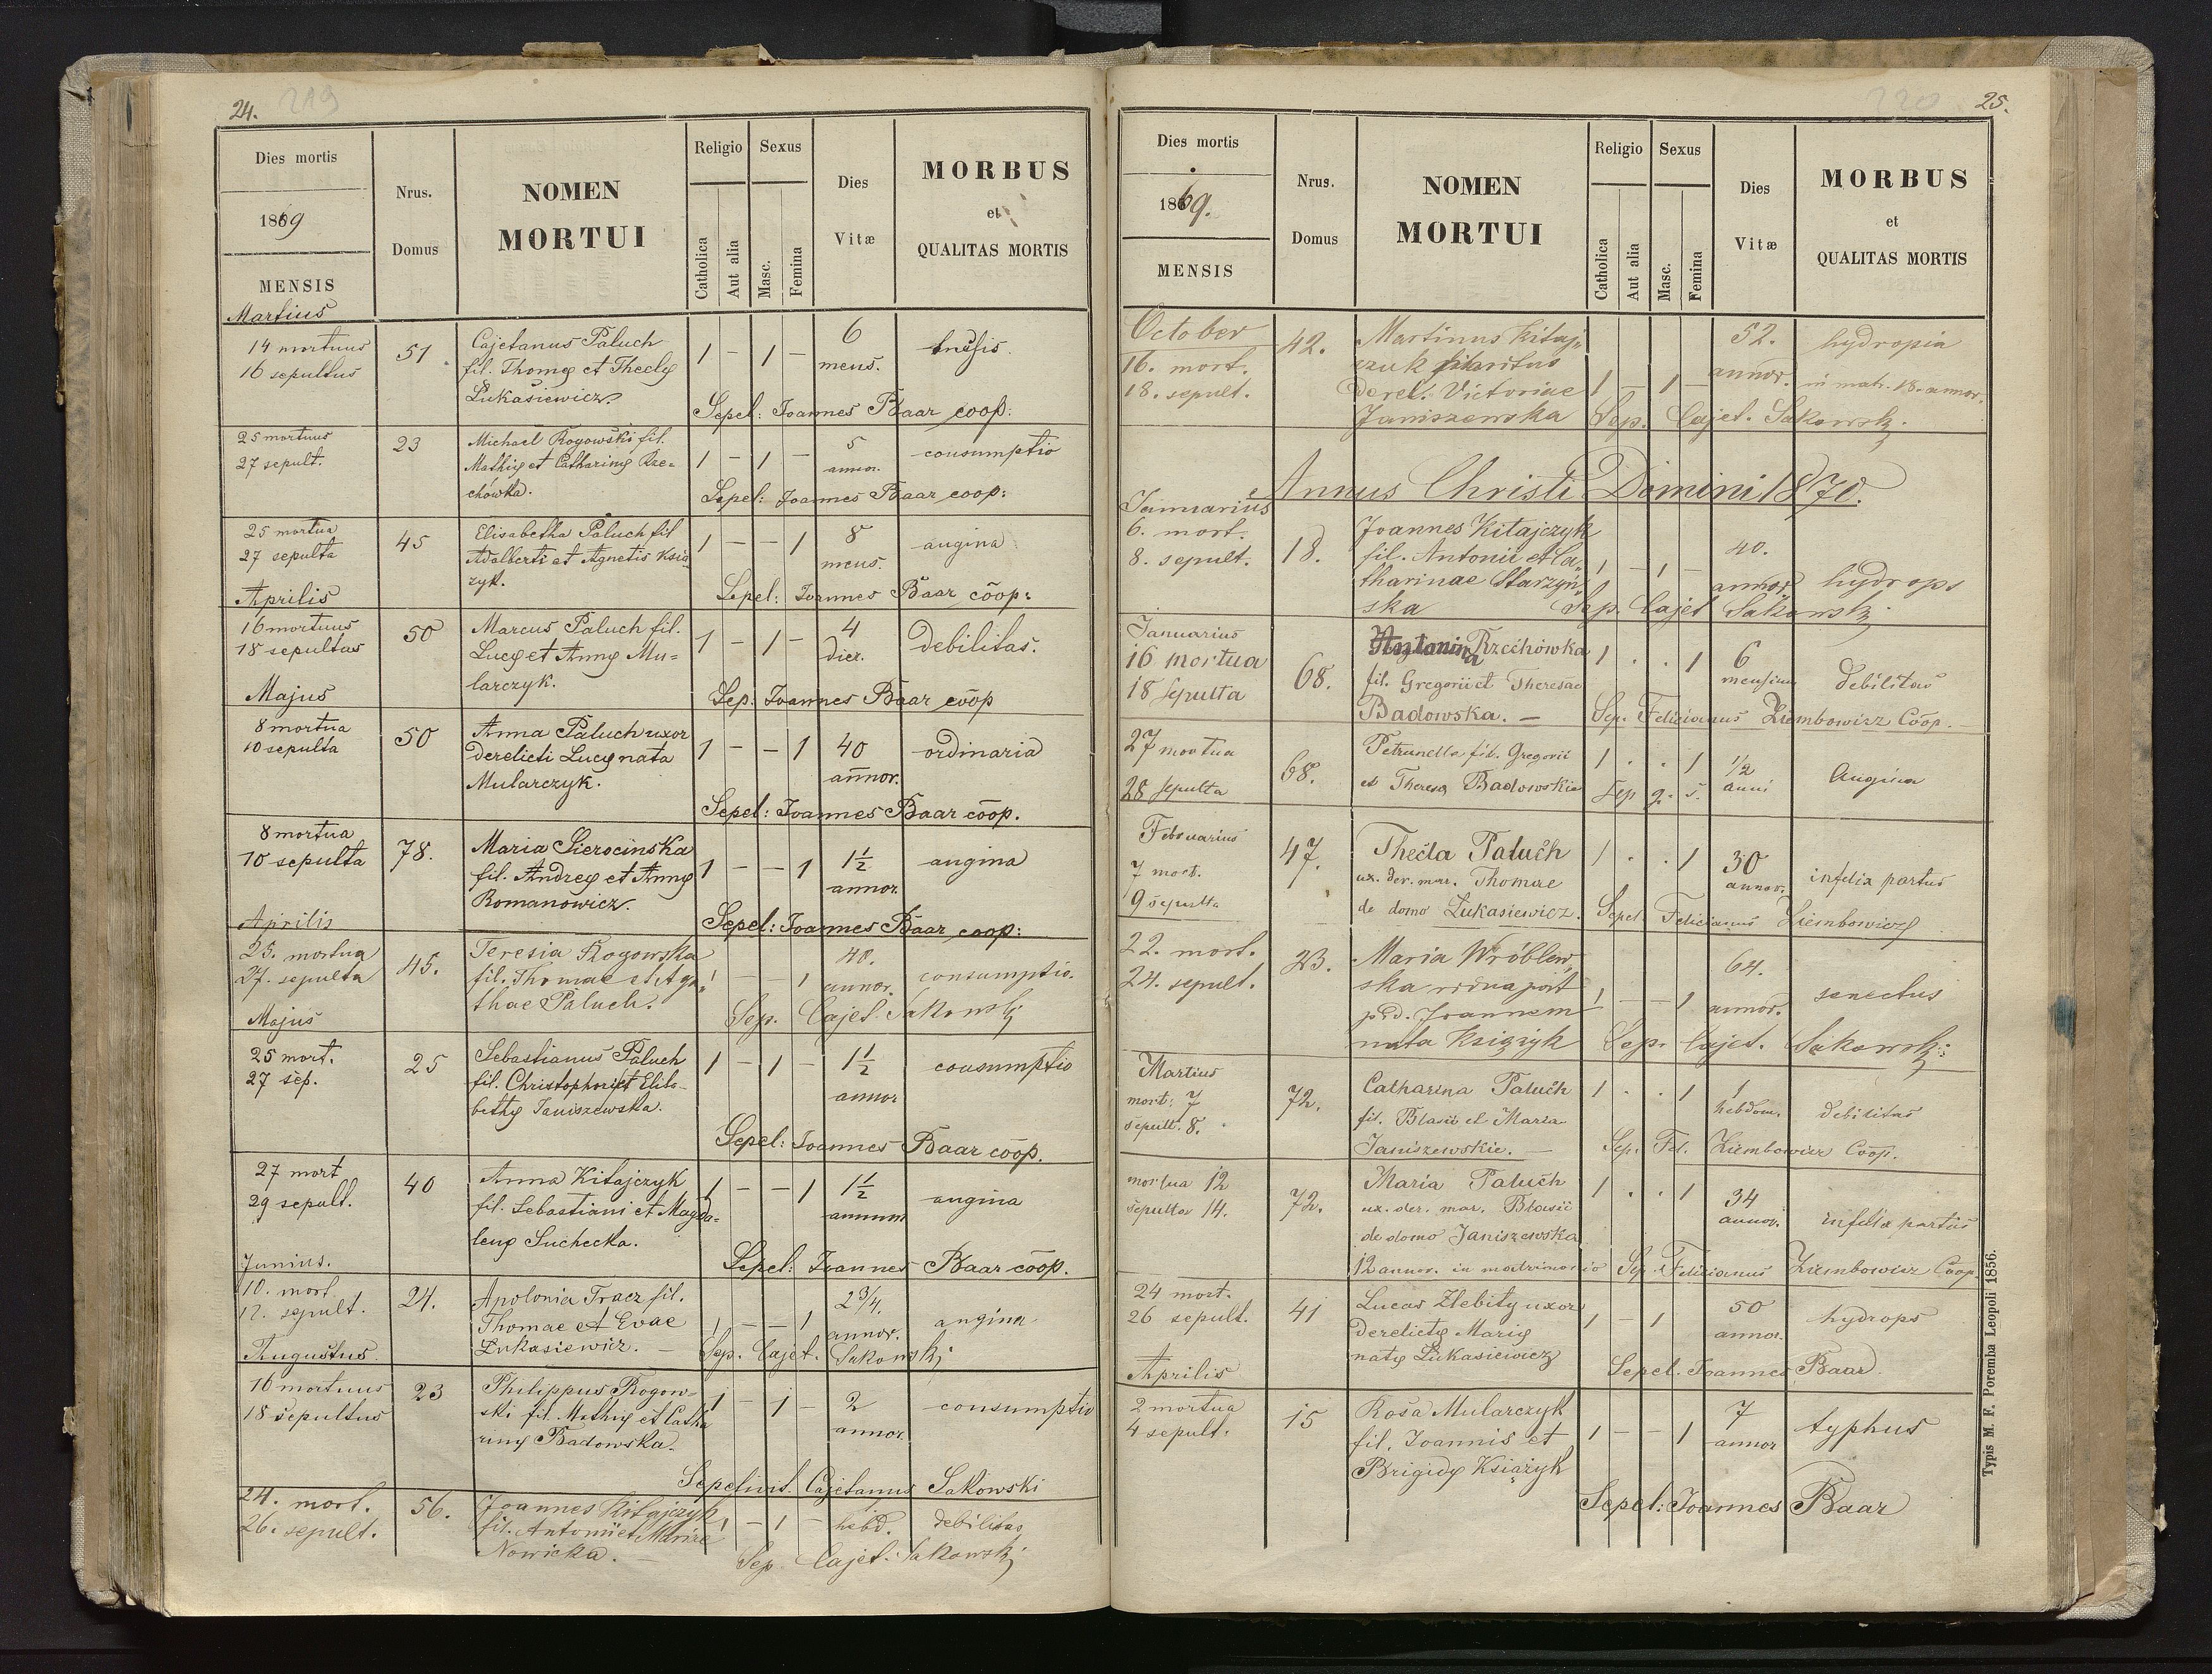 24. 219
Dies mortis
1869
MENSIS
Nrus.
Domus
NOMEN
MORTUI
Religio
Catholica
Aut alia
Sexus
Masc.
Femina
Dies
Vitæ
MORBUS
et
QUALITAS MORTIS
Martius
14 mortuus
16 sepultus
51.
Cajetanus Paluch
fil. Thomę et Theclę
Łukasiewicz.
1 - 1 -
6
mens.
Sepel: Joannes Baar coop:
25 mortuus
27 sepult.
23
Michael Rogowski fil.
Mathię et Catharinę Rze=
chówka.
1 - 1 -
5
annor.
consumptio
Sepel: Joannes Baar coop:
25 mortua
27 sepulta
45
Elisabetha Paluch fil
Adalberti et Agnetis Ksią-
zyk.
1 - - 1
8
mens.
angina
Sepel: Joannes Baar coop:
Aprilis
16 mortuus
18 sepultus
50
Marcus Paluch fil.
Lucę et Annę Mu=
larczyk.
1 - 1 -
4
dier.
debilitas.
Sep: Joannes Baar coop
Majus
8 mortua
10 sepulta
50
Anna Paluch uxor
derelicti Lucę nata
Mularczyk.
1 - - 1
40
annor.
ordinaria
Sepel: Joannes Baar coop.
8 mortua
10 sepulta
78.
Maria Sierocinska
fil. Andreę et Annę
Romanowicz.
1 - - 1
1½
annor
angina
Sepel: Joannes Baar coop:
Aprilis
25. mortua
27. sepulta
45.
Teresia Rogowska
fil. Thomae et Aga„
thae Paluch.
1 - - 1
40.
annor.
consumptio.
Sep. Cajet. Sakowski
Majus
25 mort.
27 sep.
25
Sebastianus Paluch
fil. Christophori et Elisa-
bethę Janiszewska.
1 - 1 -
1½
annor
consumptio
Sepel: Joannes Baar coop.
27 mort
29 sepult.
40
Anna Kitajczyk
fil. Sebastiani et Magda=
lenę Suchecka.
1 - - 1
1½
annum
angina
Sepel: Joannes Baar coop.
Junius.
10. mort.
12. sepult.
24.
Apolonia Tracz fil.
Thomae et Evae
Łukasiewicz.
1 - - 1
2¾.
annor.
angina
Sep. Cajet. Sakowski
Augustus.
16 mortuus
18 sepultus
23
Philippus Rogow-
ski fil. Mathię et Catha
rinę Badowska.
1 - 1 -
2
annor.
consumptio
Sepelivit. Cajetanus Sakowski
24. mort.
26. sepult.
56.
Joannes Kitajczyk
fil. Antonii et Mariae
Nowicka.
1 - 1 -
hebd.
debilitas
Sep. Cajet. Sakowski
220 25.
Dies mortis
1869.
MENSIS
Nrus.
Domus
NOMEN
MORTUI
Religio
Catholica
Aut alia
Sexus
Masc.
Femina
Dies
Vitæ
MORBUS
et
QUALITAS MORTIS
October
16. mort.
18. sepult.
42.
Martinus Kitaj„
czuk maritus
derel. Victoriae
Janiszewska
1 - 1 -
52.
annor.
hydropia
in matr. 18. annor.
Sep. Cajet. Sakowski
Annus Christi Domini 1870.
Januarius
6. mort.
8. sepult.
18.
Joannes Kitajczyk
fil. Antonii et Ca„
tharinae Starzyń„
ska
1 - 1 -
40.
annor.
hydrops
Sep. Cajet Sakowski
Januarius
16 mortua
18 sepulta
68.
Antonina Rzechówka
fil. Gregorii et Theresae
Badowska. -
1 . . 1
6
mensium
debilitas
Sep. Felicianus Ziembowicz Coop.
27 mortua
28 sepulta
68.
Petrunella fil. Gregorii
et Theresę Badowskie
1 . . 1
½
anni
Angina
Sep q. s.
Februarius
7 mort.
9 sepulta
47.
Thecla Paluch
ux. der. mar. Thomae
de domo Łukasiewicz.
1 . . 1
30
annor.
infelix partus
Sepel. Felicianus Ziembowicz
22. mort.
24. sepult.
23.
Maria Wróblew„
ska vidua post
pod. Joannem
nata Książyk
1 - - 1
64.
annor.
senectus
Sep. Cajet. Sakowski
Martius
mort: 7
sepult. 8.
72.
Catharina Paluch
fil. Blasii et Maria
Janiszewskie. -
1 . . 1
1
hebdom.
debilitas
Sep. Fel. Ziembowicz Coop.
mortua 12
sepulta 14.
72.
Maria Paluch
ux. der. mar. Blasii
de domo Janiszewska
12 annor. in matrimonio
1 . . 1
34
annor.
infelix partus
Sep. Felicianus Ziembowicz Coop
24 mort.
26 sepult.
41
Lucas Zlebity uxor
derelictę Marię
natę Łukasiewicz
1 - 1
50
annor.
hydrops
Sepel. Joannes Baar
Aprilis
2 mortua
4 sepult.
15
Rosa Mularczyk
fil. Joannis et
Brigidę Książyk
1 - - 1
7
annor
typhus
Sepel: Joannes Baar
Typis M. F. Poremba Leopoli 1856.